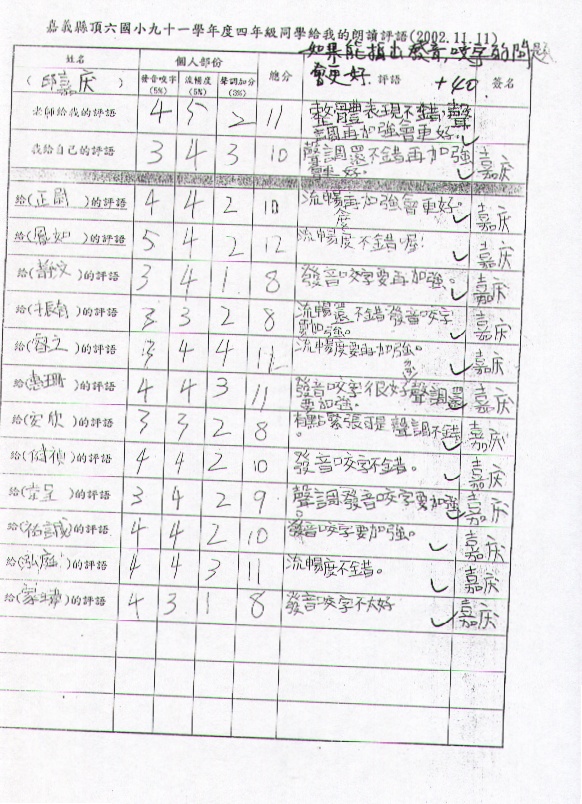 嘉義縣頂六國小九十一學年度四年級同學給我的朗讀評語(2002.11.11)
如果能指出發音,咬字的問題
會更好. +40
姓名 個人部份 總分 評語 簽名
(邱嘉庆) 發音咬字(5%) 流暢度(5%) 聲調加分(3%)
老師給我的評語 4 5 2 11 整體表現不錯,聲
調再加強會更好。
我給自己的評語 3 4 3 10 聲調還不錯再加強
會更好。 嘉庆
給(正尉)的評語 4 4 2 10 流暢度再加強會更好。 嘉庆
給( 如)的評語 5 4 2 12 流暢度不錯喔! 嘉庆
給( 文)的評語 3 4 1 8 發音咬字要再加強。 嘉庆
給( )的評語 3 3 2 8 流暢還不錯發音咬字
要加強。 嘉庆
給(睿之)的評語 3 4 4 11 流暢度要再加強。 嘉庆
給(惠珊)的評語 4 4 3 11 發音咬字很好聲調還
要加強. 嘉庆
給(安欣)的評語 3 3 2 8 有點緊張可是聲調不錯
。 嘉庆
給( )的評語 4 4 2 10 發音咬字不錯。 嘉庆
給( )的評語 3 4 2 9 聲調發音咬字要加強
。 嘉庆
給(祐誠)的評語 4 4 2 10 發音咬字要加強。 嘉庆
給(泓庭)的評語 4 4 3 11 流暢度不錯。 嘉庆
給(家瑋)的評語 4 3 1 8 發音咬字不太好 嘉庆